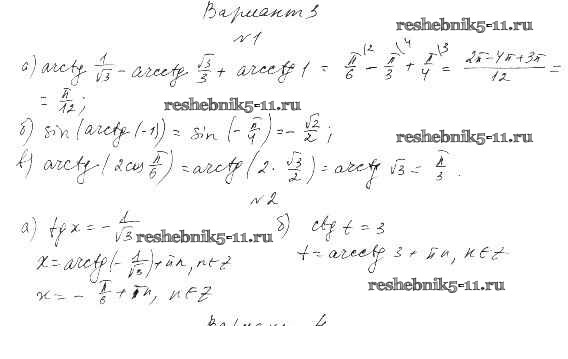 Вариант 3
reshebnik5-11.ru
№1
а) arctg 1/√3 - arcctg √3/3 + arcctg 1 = π/6 \2 - π/3 \4 + π/4 \3 = (2π-4π+3π)/12 =
= π/12;
reshebnik5-11.ru
б) sin(arctg(-1)) = sin(-π/4) = -√2/2;
reshebnik5-11.ru
в) arctg(2cos π/6) = arctg(2·√3/2) = arctg √3 = π/3.
№2
а) tg x = -1/√3
reshebnik5-11.ru
x = arctg(-1/√3)+πn, n∈Z
x = -π/6 + πn, n∈Z
б) ctg t = 3
t = arcctg 3 + πn, n∈Z
reshebnik5-11.ru